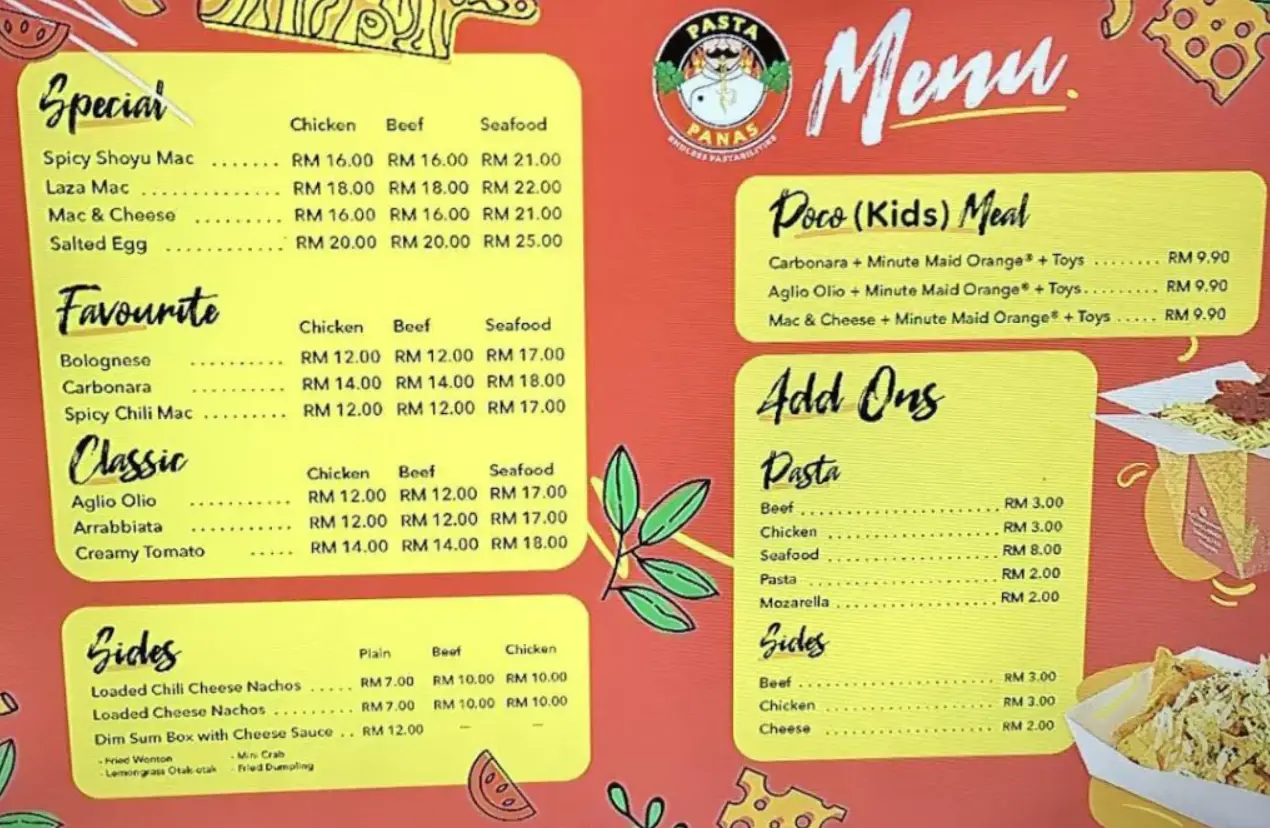 Special
Chicken Beef Seafood
Spicy Shoyu Mac ....... RM 16.00 RM 16.00 RM 21.00
Laza Mac .............. RM 18.00 RM 18.00 RM 22.00
Mac & Cheese ......... RM 16.00 RM 16.00 RM 21.00
Salted Egg ............ RM 20.00 RM 20.00 RM 25.00
Favourite
Chicken Beef Seafood
Bolognese .......... RM 12.00 RM 12.00 RM 17.00
Carbonara .......... RM 14.00 RM 14.00 RM 18.00
Spicy Chili Mac ......... RM 12.00 RM 12.00 RM 17.00
Classic
Chicken Beef Seafood
Aglio Olio ........... RM 12.00 RM 12.00 RM 17.00
Arrabbiata ........... RM 12.00 RM 12.00 RM 17.00
Creamy Tomato ..... RM 14.00 RM 14.00 RM 18.00
Sides
Plain Beef Chicken
Loaded Chili Cheese Nachos ..... RM 7.00 RM 10.00 RM 10.00
Loaded Cheese Nachos ......... RM 7.00 RM 10.00 RM 10.00
Dim Sum Box with Cheese Sauce .. RM 12.00 – –
- Fried Wonton - Mini Crab
- Lemongrass Otak-otak - Fried Dumpling
PASTA
PANAS
ENDLESS PASTABILITIES
Menu
Poco (Kids) Meal
Carbonara + Minute Maid Orange® + Toys ........ RM 9.90
Aglio Olio + Minute Maid Orange® + Toys......... RM 9.90
Mac & Cheese + Minute Maid Orange® + Toys ..... RM 9.90
Add Ons
Pasta
Beef ........................ RM 3.00
Chicken ..................... RM 3.00
Seafood ..................... RM 8.00
Pasta ....................... RM 2.00
Mozarella ................... RM 2.00
Sides
Beef ........................ RM 3.00
Chicken ..................... RM 3.00
Cheese ...................... RM 2.00